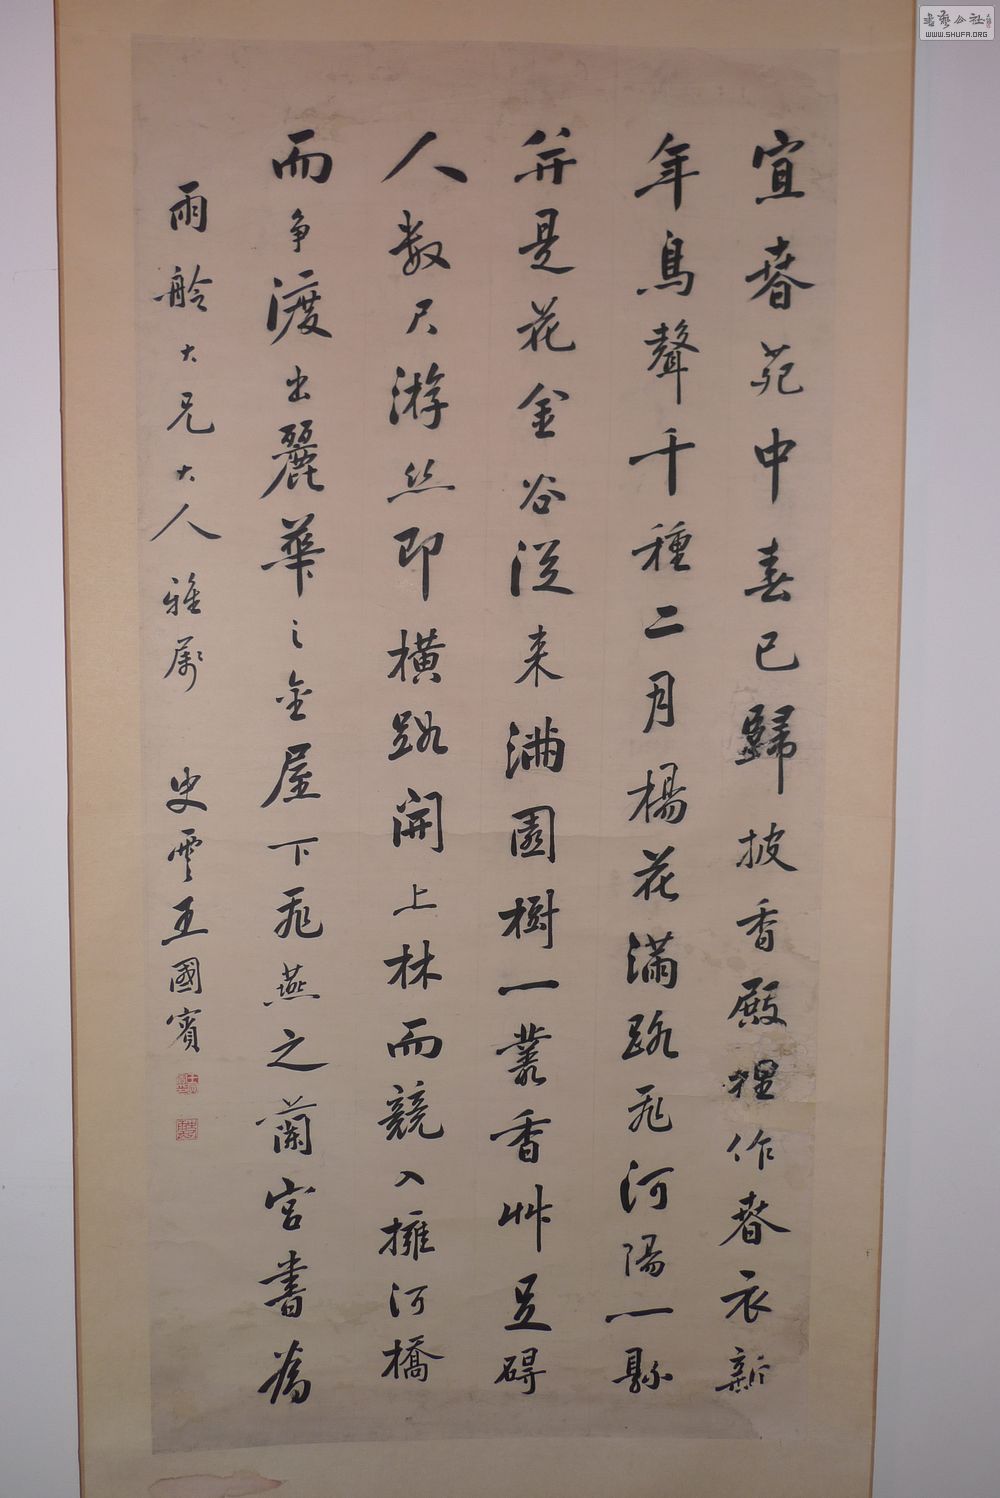 宜春苑中春已歸披香殿裡作春衣新
年鳥聲千種二月楊花滿路飛河陽一縣
并是花金谷從来滿園樹一叢香艸足碍
人數尺游丝即橫路開上林而競入擁河橋
而爭渡出麗華之金屋下飛燕之蘭宮書為
雨舲大兄大人雅屬 史雲王國賓
書藝公社
WWW.SHUFA.ORG